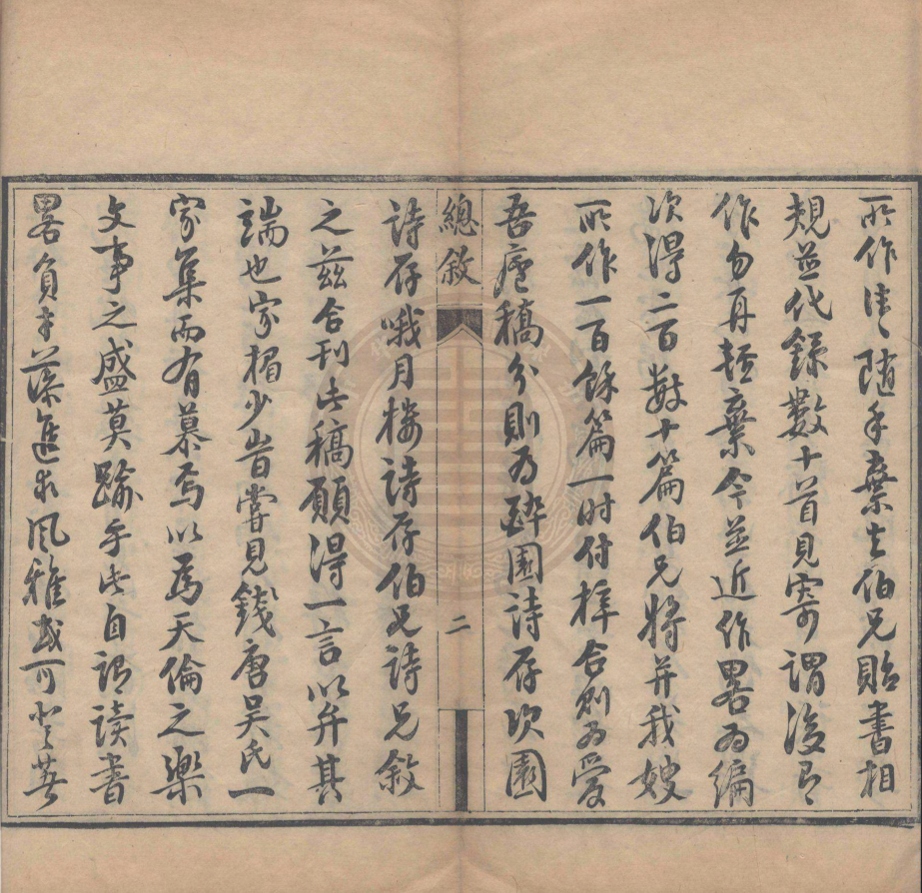 所作往往隨手棄去伯兄貽書相
規並代錄數十首見寄謂後有
作勿再輕棄今並近作畧為編
次得二百數十篇伯兄將并我嫂
所作一百餘篇一時付梓合則為愛
吾廬稿分則為醉園詩存次園
總敘
二
詩存哦月樓詩存伯兄詩兄敘
之茲合刊此稿願得一言以弁其
端也家楣少時嘗見錢唐吳氏一
家集而有慕焉以為天倫之樂
文事之盛莫踰乎此自謂讀書
畧負才藻進求風雅或可不蕪